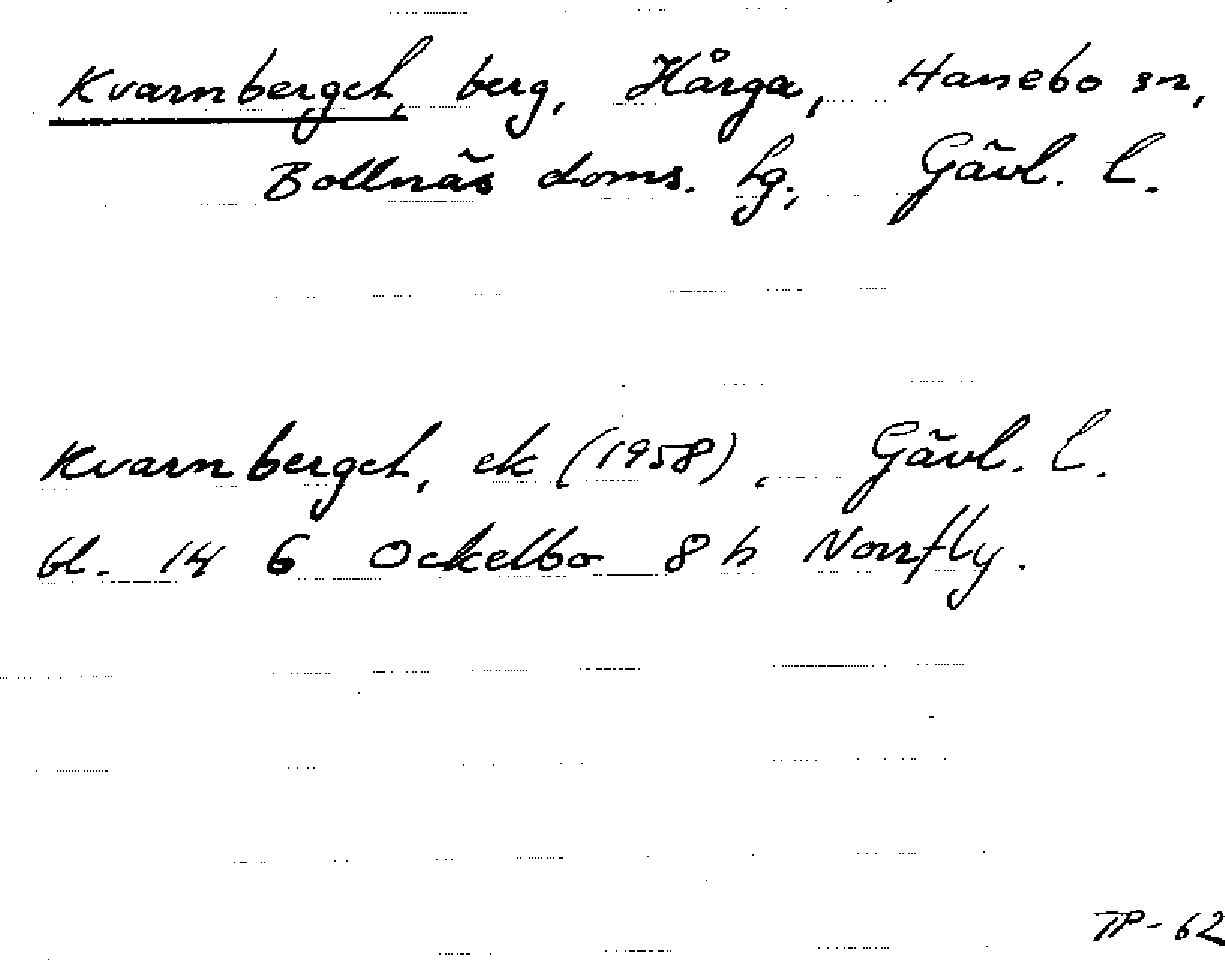 Kvarnberget, berg, Hårga, Hanebo sn,
Bollnäs doms. hg., Gävl. l.
Kvarnberget, ek (1958), Gävl. l.
bl. 14 G Ockelbo 8 h Norrfly.
TP-62